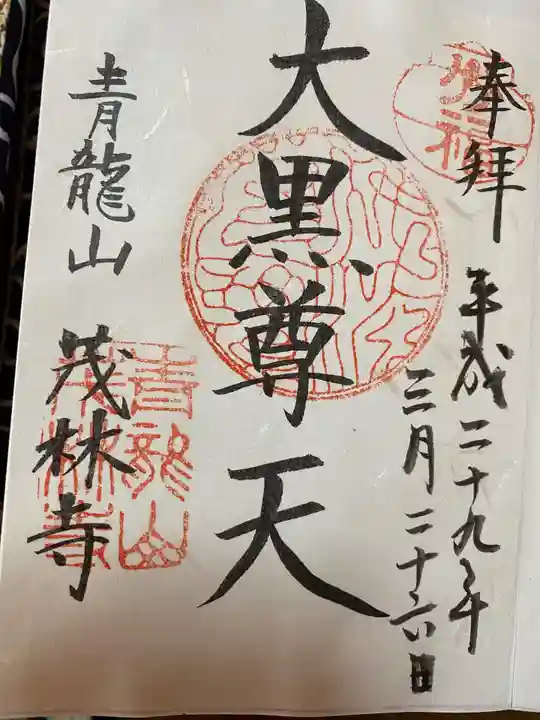 奉拝
平成二十九年
三月二十六日
大黒尊天
青龍山 茂林寺
青龍山
茂林寺